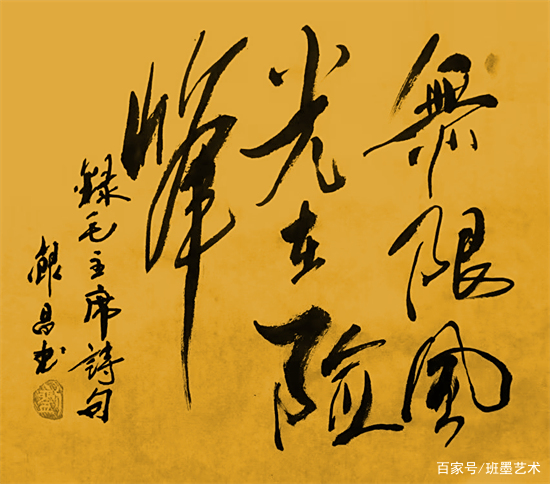 無限風
光在险
峰
録毛主席詩句
昌书
百家号/班墨艺术